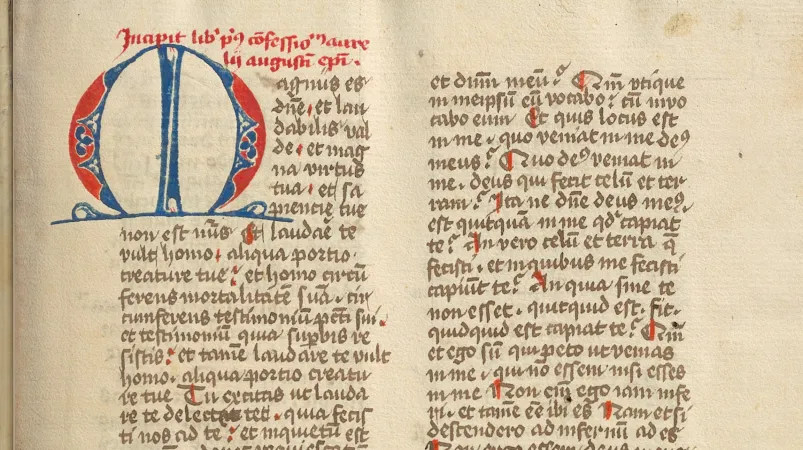 Incipit lib' p'9 cōfessio'nū aure
lii augusti ep̄i.
Magnus es
dn̄e. et lau
dabilis val
de. et mag
na virtus
tua. et sa
piencie tue
non est nūs Et laudare te
vult homo. aliqua portio
creature tue. et homo circū
ferens mortalitatē suā. cir
cumferens testimoniū pcc̄ti sui.
et testimoniū quia supbis re
sistis. et tamē laudare te vult
homo. aliqua portio creatu
re tue Tu excitas ut lauda
re te delectet. quia fecis
ti nos ad te. et inquietū est
et dn̄m meū? Qm̄ vtique
in meipsū eū vocabo? cū invo
cabo eum Et quis locus est
in me. quo veniat in me de9
meus? Quo de9 veniat in
me. deus qui fecit celū et ter
ram? Ita ne dn̄e deus me9.
est quitquā in me qd' capiat
te? An vero celū et terra q̄
fecisti. et in quibus me fecisti
capiūt te? An quia sine te
non esset. quitquid est. fit.
quidquid est capiat te? Qm̄
et ego sū qui peto ut venias
in me. qui no essem nisi esses
in me Non em̄ ego iam infe
ri. et tamē eē ibi es Nam et si
descendero ad infernū ad es